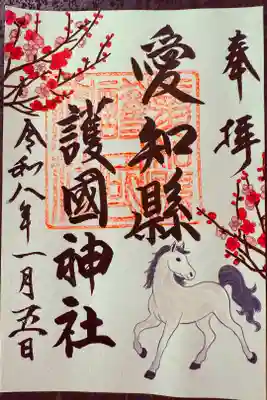 奉拝
愛知縣
護國神社
令和八年一月五日